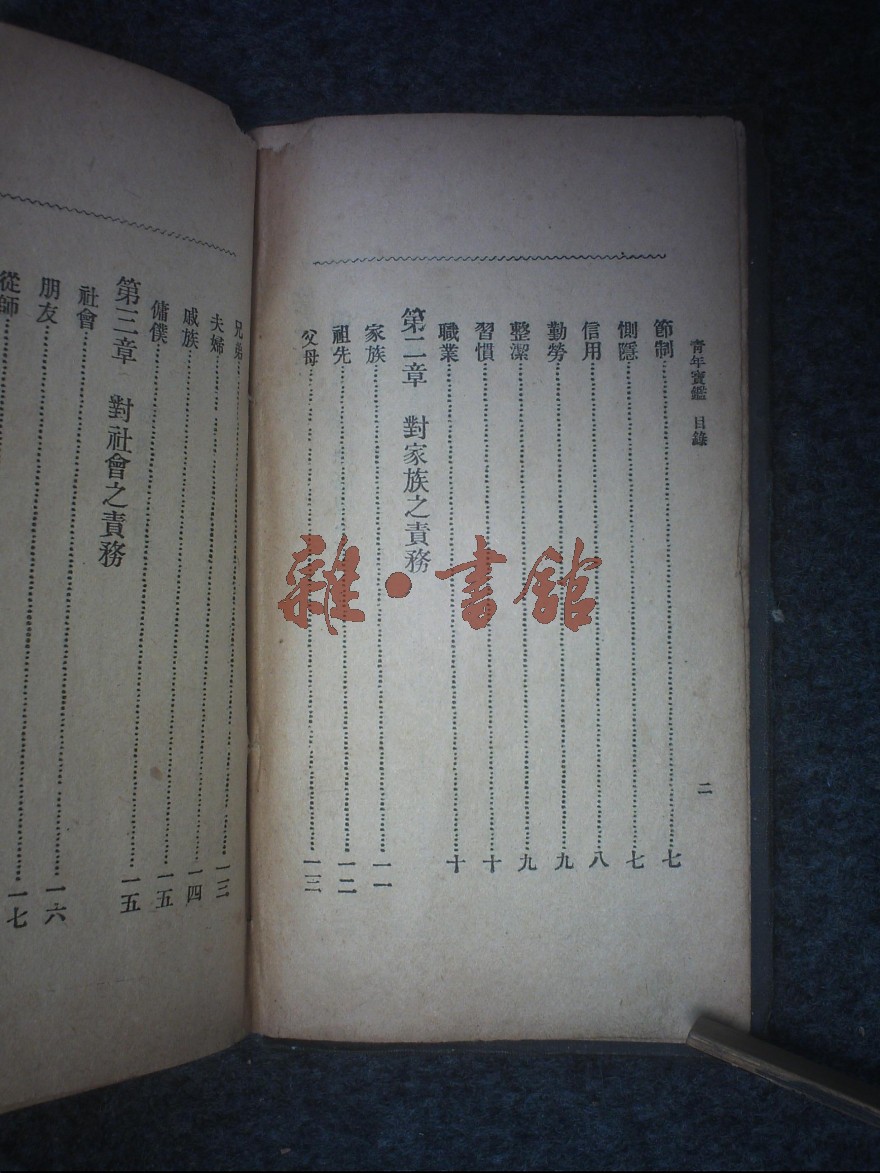 青年寶鑑 目錄
二
節制 七
惻隱 七
信用 八
勤勞 九
整潔 九
習慣 十
職業 十
第二章 對家族之責務
家族 一一
祖先 一二
父母 一三
兄弟
夫婦 一三
戚族 一四
傭僕 一五
第三章 對社會之責務
社會 一五
朋友 一六
從師 一七
雜·書館